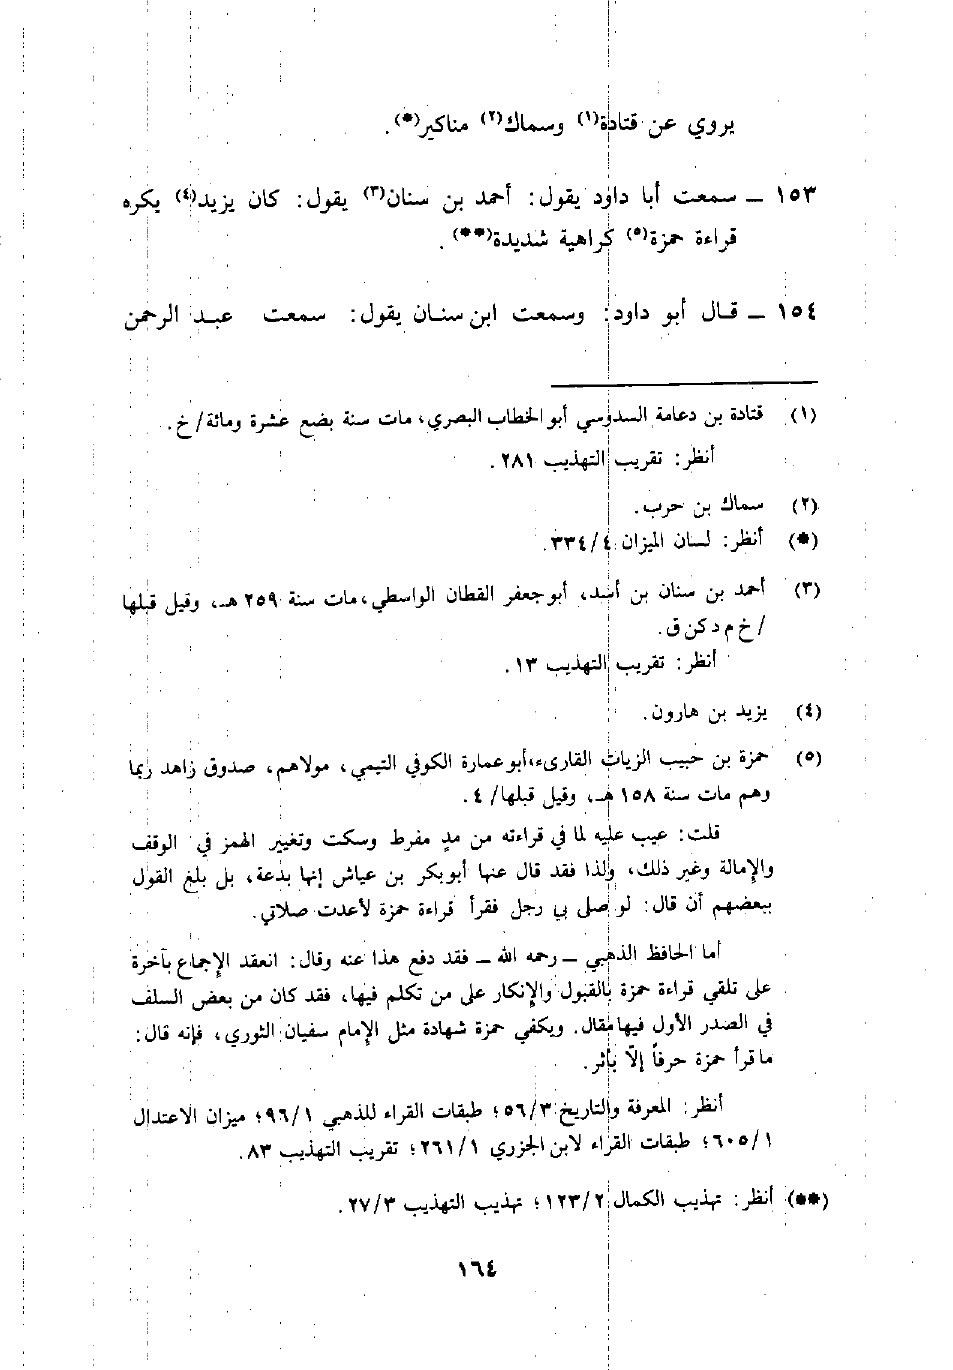 يروي عن قتادة(١) وسماك(٢) مناكير(*).
١٥٣ ــ سمعت أبا داود يقول: أحمد بن سنان(٣) يقول: كان يزيد(٤) يكره
قراءة حمزة(٥) كراهية شديدة(**).
١٥٤ ــ قال أبو داود: وسمعت ابن سنان يقول: سمعت عبد الرحمن
(١) قتادة بن دعامة السدوسي أبو الخطاب البصري، مات سنة بضع عشرة ومائة/ خ.
أنظر: تقريب التهذيب ٢٨١.
(٢) سماك بن حرب.
(*) أنظر: لسان الميزان ٣٣٤/٤.
(٣) أحمد بن سنان بن أسد، أبو جعفر القطان الواسطي، مات سنة ٢٥٩ هـ، وقيل قبلها
/ خ م د كن ق.
أنظر: تقريب التهذيب ١٣.
(٤) يزيد بن هارون.
(٥) حمزة بن حبيب الزيات القارىء، أبو عمارة الكوفي التيمي، مولاهم، صدوق زاهد ربما
وهم مات سنة ١٥٨ هـ، وقيل قبلها/ ٤.
قلت: عيب عليه لما في قراءته من مدٍ مفرط وسكت وتغيير الهمز في الوقف
والإمالة وغير ذلك، ولذا فقد قال عنها أبو بكر بن عياش إنها بدعة، بل بلغ القول
ببعضهم أن قال: لو صلى بي رجل فقرأ قراءة حمزة لأعدت صلاتي.
أما الحافظ الذهبي ــ رحمه الله ــ فقد دفع هذا عنه وقال: انعقد الإجماع بآخرة
على تلقي قراءة حمزة بالقبول والإنكار على من تكلم فيها، فقد كان من بعض السلف
في الصدر الأول فيها مقال. ويكفي حمزة شهادة مثل الإمام سفيان الثوري، فإنه قال:
ما قرأ حمزة حرفاً إلّا بأثر.
أنظر: المعرفة والتاريخ ٥٦/٣؛ طبقات القراء للذهبي ٩٦/١؛ ميزان الاعتدال
٦٠٥/١؛ طبقات القراء لابن الجزري ٢٦١/١؛ تقريب التهذيب ٨٣.
(**) أنظر: تهذيب الكمال ١٢٣/٢؛ تهذيب التهذيب ٢٧/٣.
١٦٤